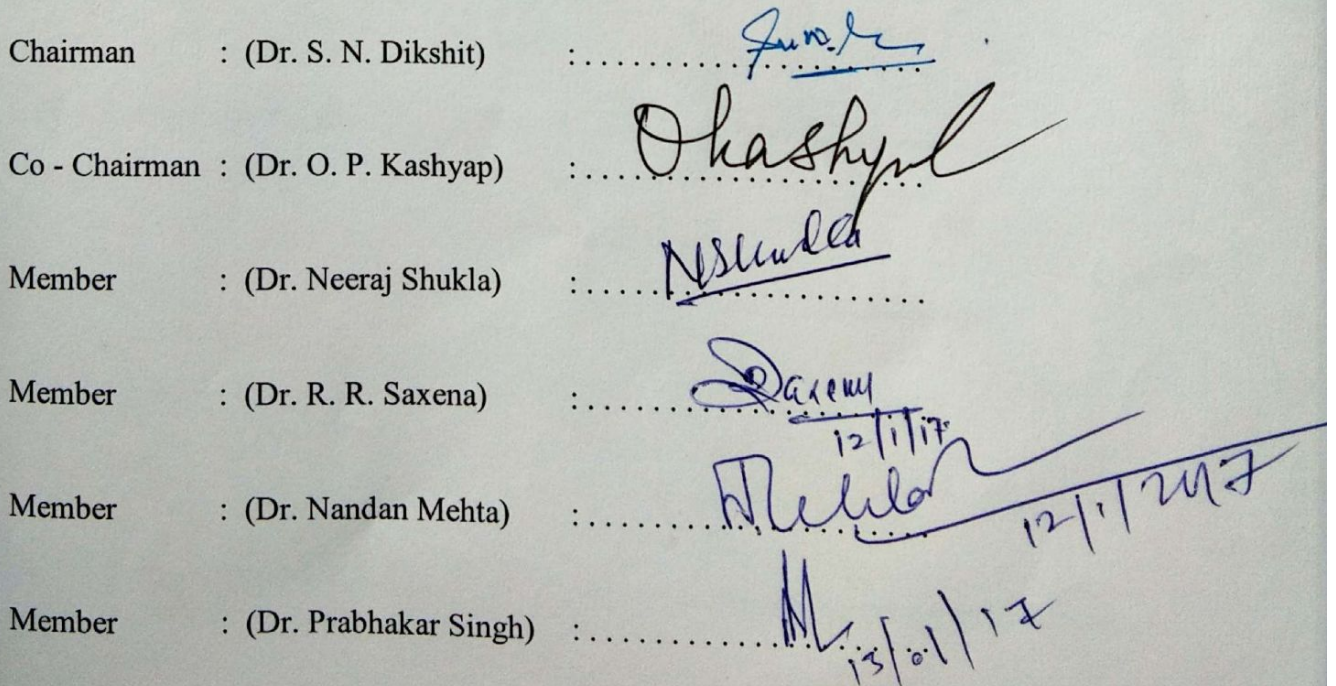 Chairman : (Dr. S. N. Dikshit) :....................
Co - Chairman : (Dr. O. P. Kashyap) :.................... Okashyap
Member : (Dr. Neeraj Shukla) :.................... NShukla
Member : (Dr. R. R. Saxena) :.................... Saxena
12/1/17
Member : (Dr. Nandan Mehta) :.................... NMehta 12/1/2017
Member : (Dr. Prabhakar Singh) :.................... 13/01/17